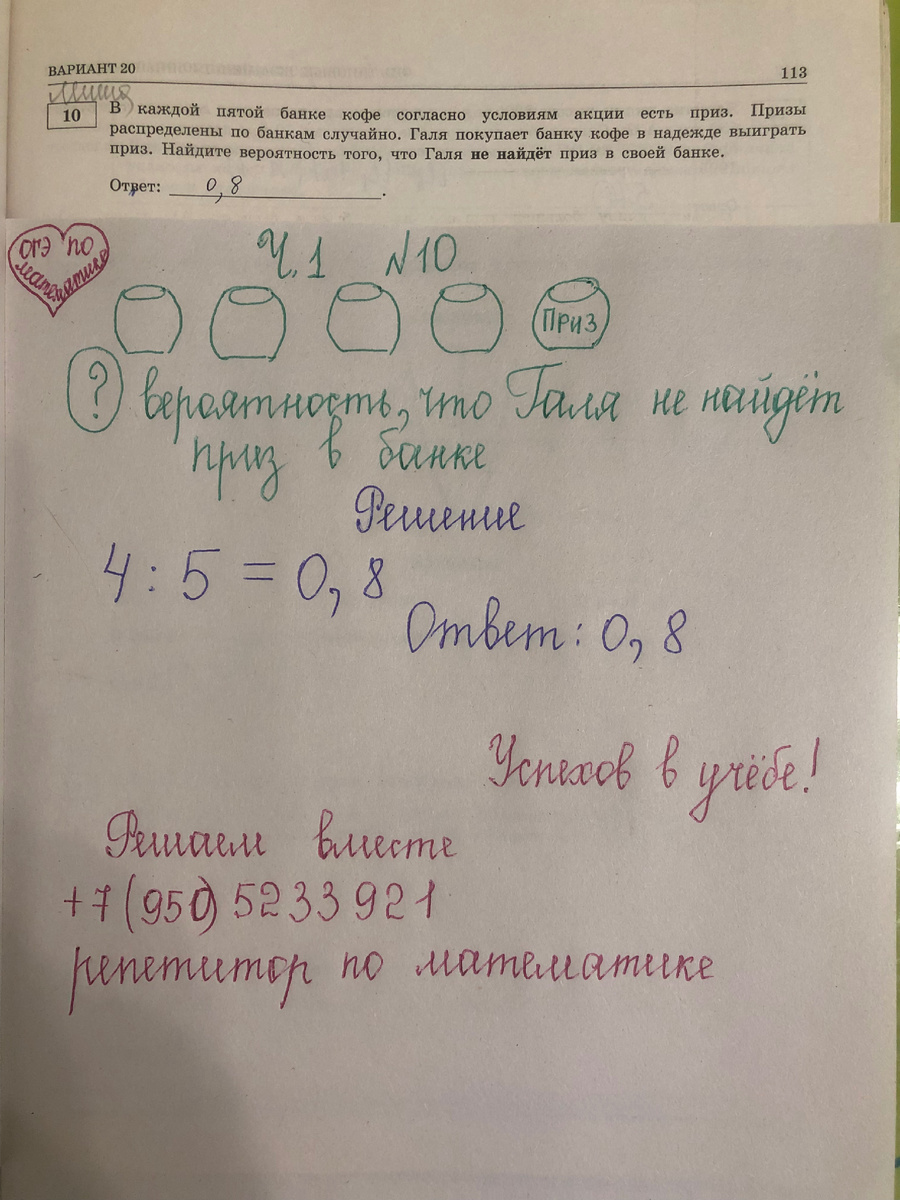 ВАРИАНТ 20
113
Миша
10
В каждой пятой банке кофе согласно условиям акции есть приз. Призы
распределены по банкам случайно. Галя покупает банку кофе в надежде выиграть
приз. Найдите вероятность того, что Галя не найдёт приз в своей банке.
Ответ: 0,8.
ОГЭ по
математике
Ч.1 №10
Приз
? вероятность, что Галя не найдёт
приз в банке
Решение
4 : 5 = 0,8
Ответ: 0,8
Успехов в учёбе!
Решаем вместе
+7(950)5233921
репетитор по математике